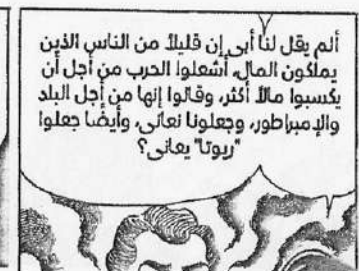 ألم يقل لنا أبى إن قليلاً من الناس الذين
يملكون المال، أشعلوا الحرب من أجل أن
يكسبوا مالاً أكثر، وقالوا إنها من أجل البلد
والإمبراطور، وجعلونا نعانى، وأيضًا جعلوا
"ريوتا" يعانى؟